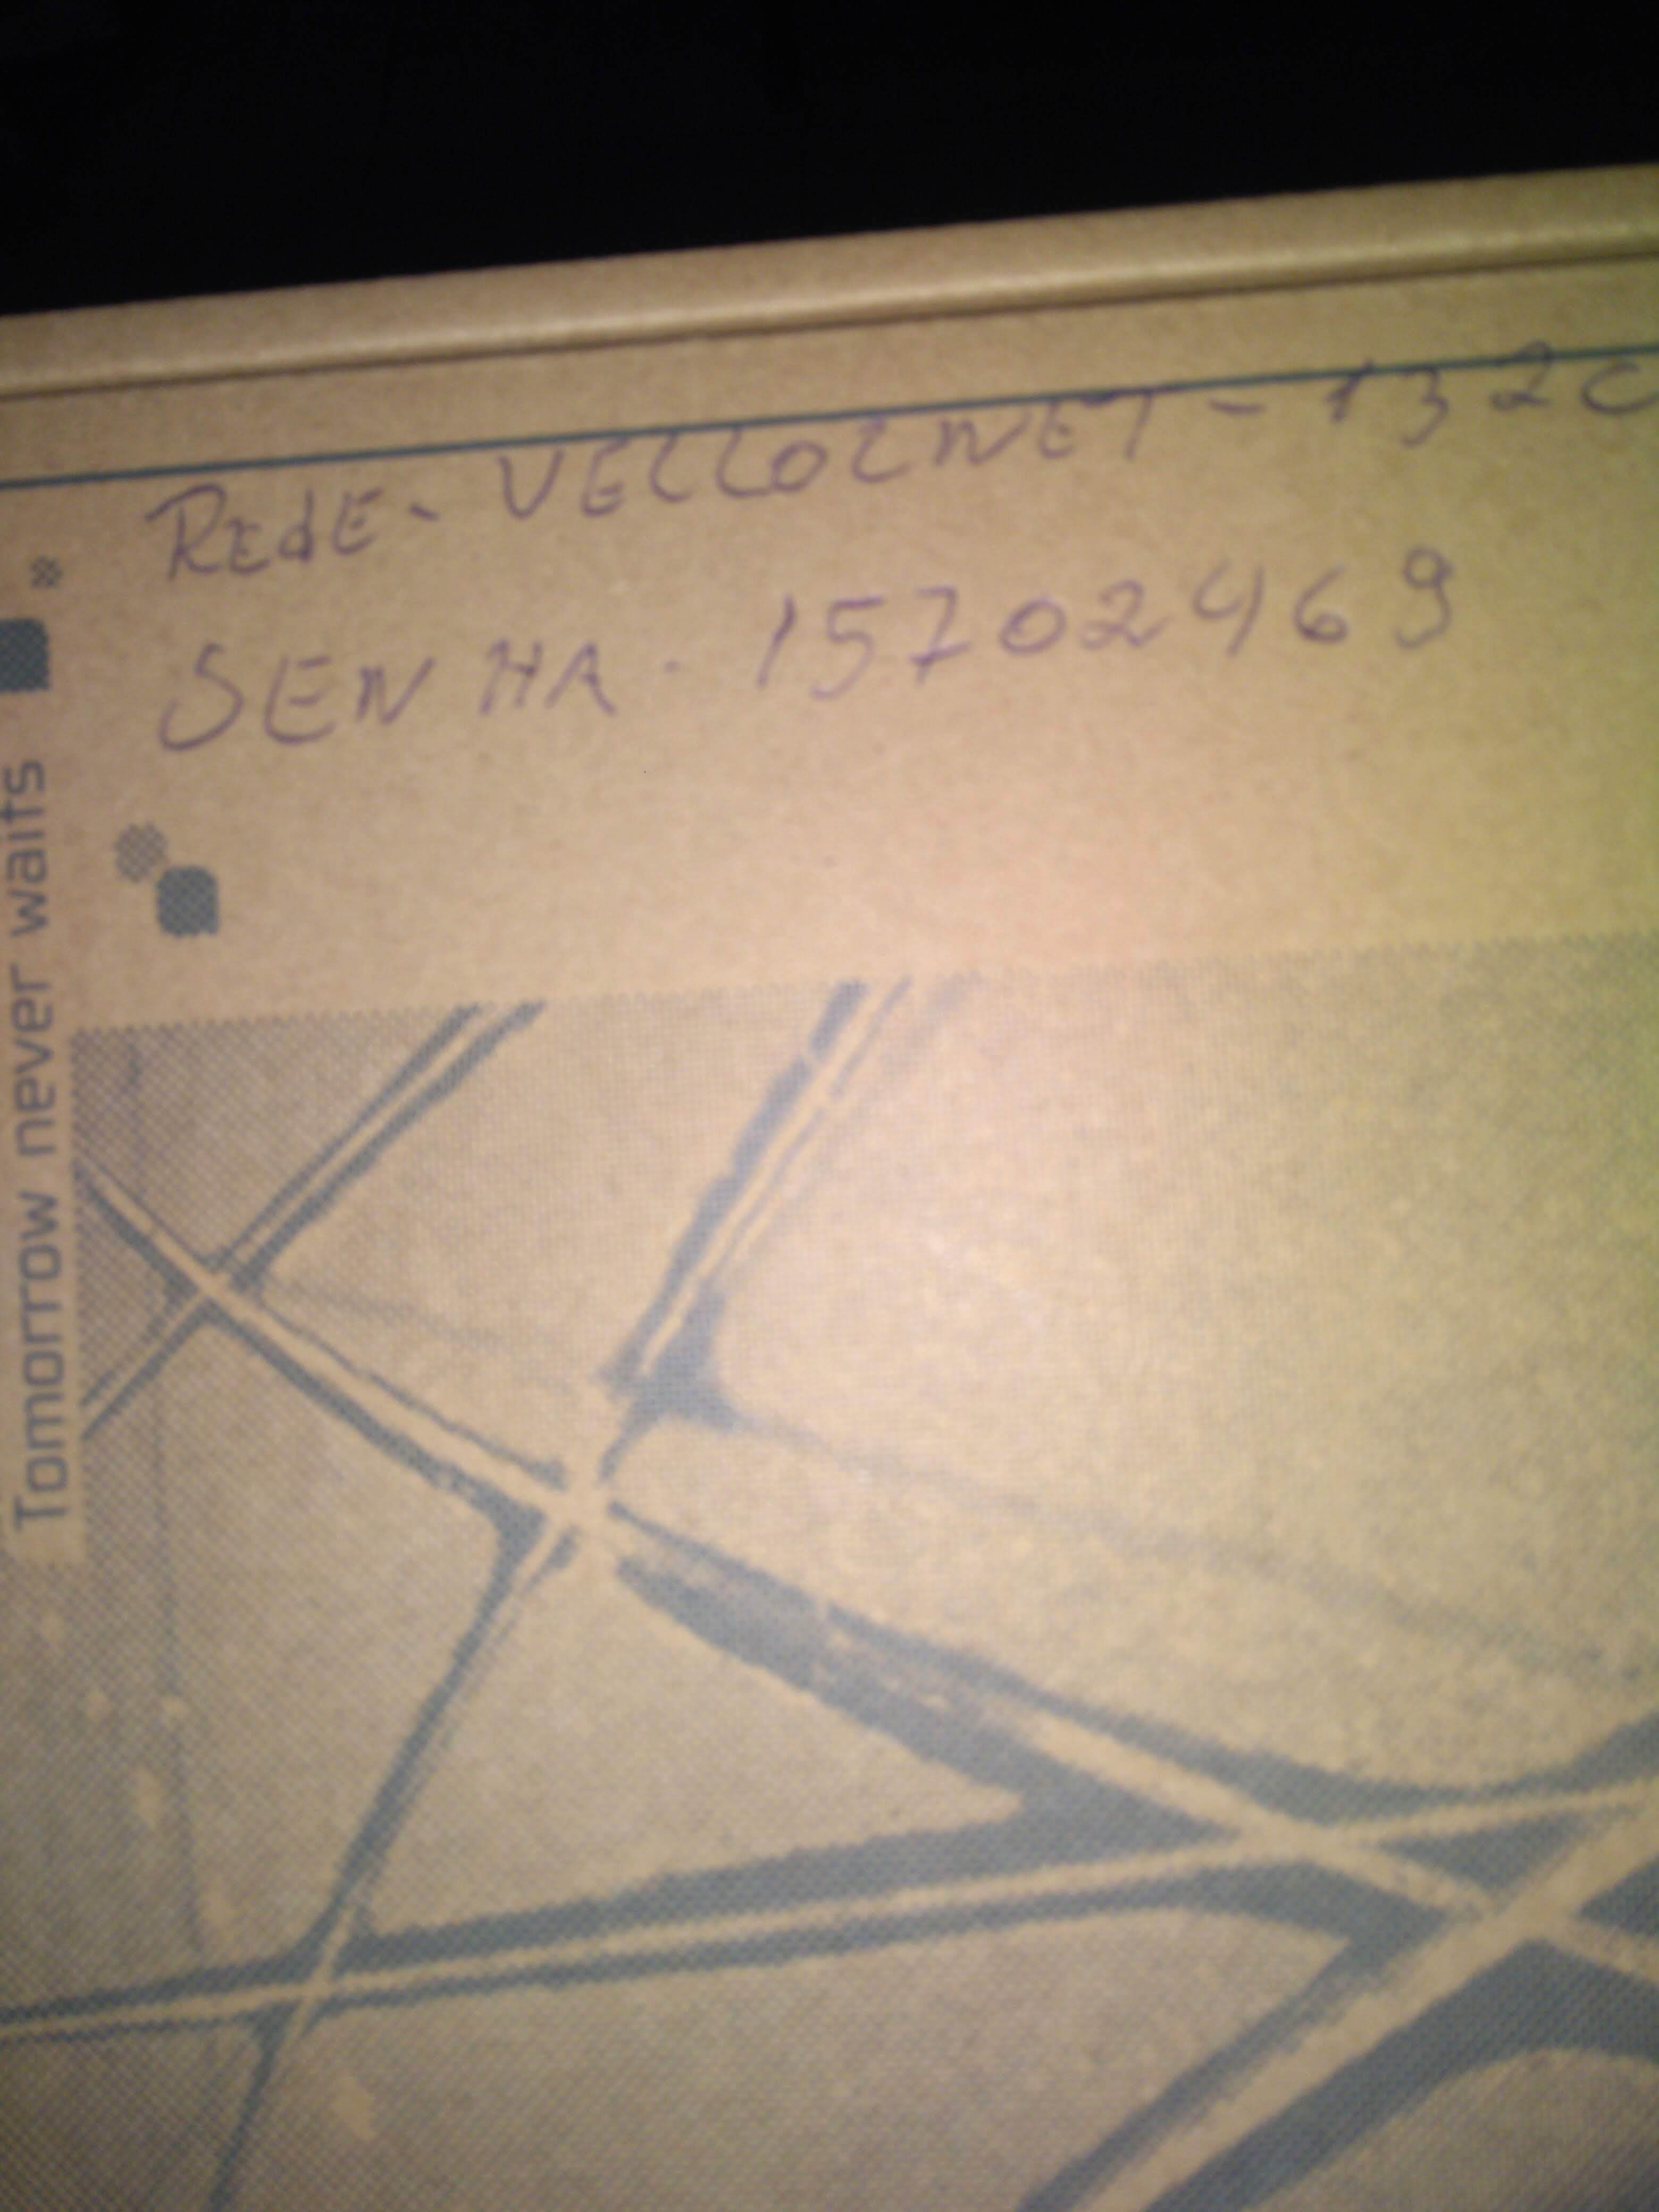 REdE - VELLOZNET - 132C
SENHA - 15702469
Tomorrow never waits